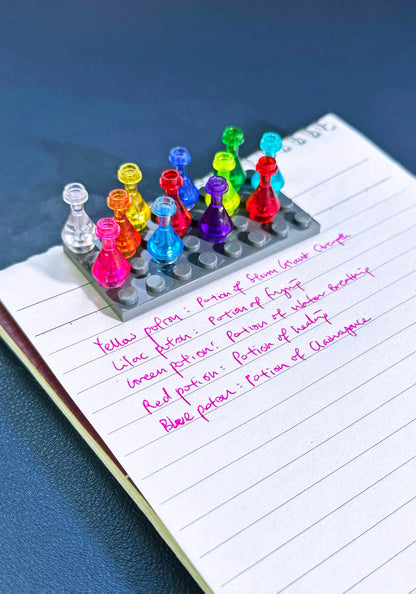 Yellow potion: Potion of Storm Giant Strength
Lilac potion: Potion of Flying
Green potion: Potion of Water Breathing
Red potion: Potion of Healing
Blue potion: Potion of Clairvoyance